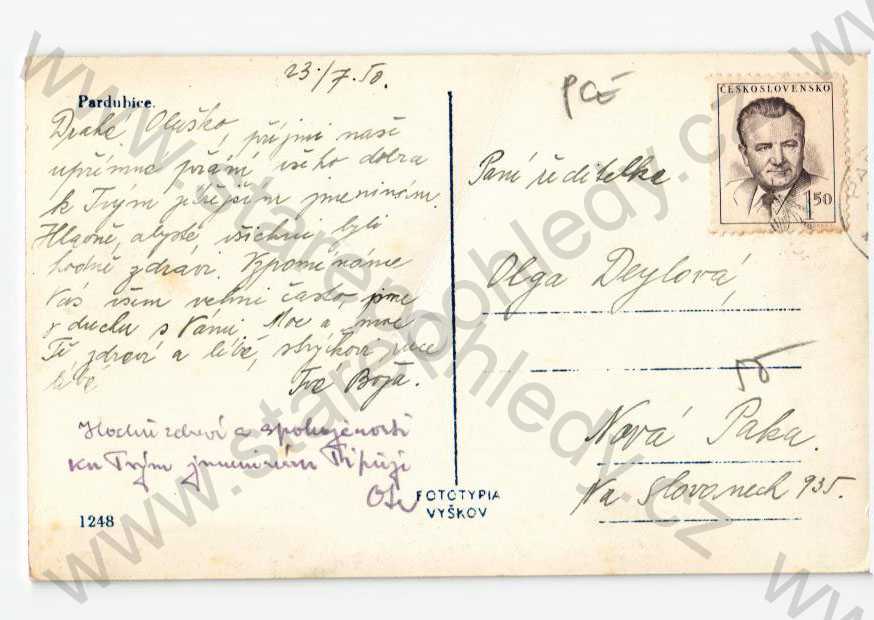 23./7.50.
Pardubice.
Drahé Oluško, přijmi naše
upřímné přání všeho dobra
k Tvým jmeninám.
Hlavně, abyste všichni byli
hodně zdrávi. Vzpomínáme
Vás všem velmi často, jsme
v duchu s Vámi. Moc a moc
Tě zdraví a líbá, strýčkovi ruce
líbá Tvá Boja.
Hodně zdraví a spokojenosti
ku Tvým jmeninám Ti přeje
1248
FOTOTYPIA
VYŠKOV
ČESKOSLOVENSKO
1.50
Paní ředitelka
Olga Deylová
Nová Paka.
Na Slovanech 935.
www.starepohledy.cz